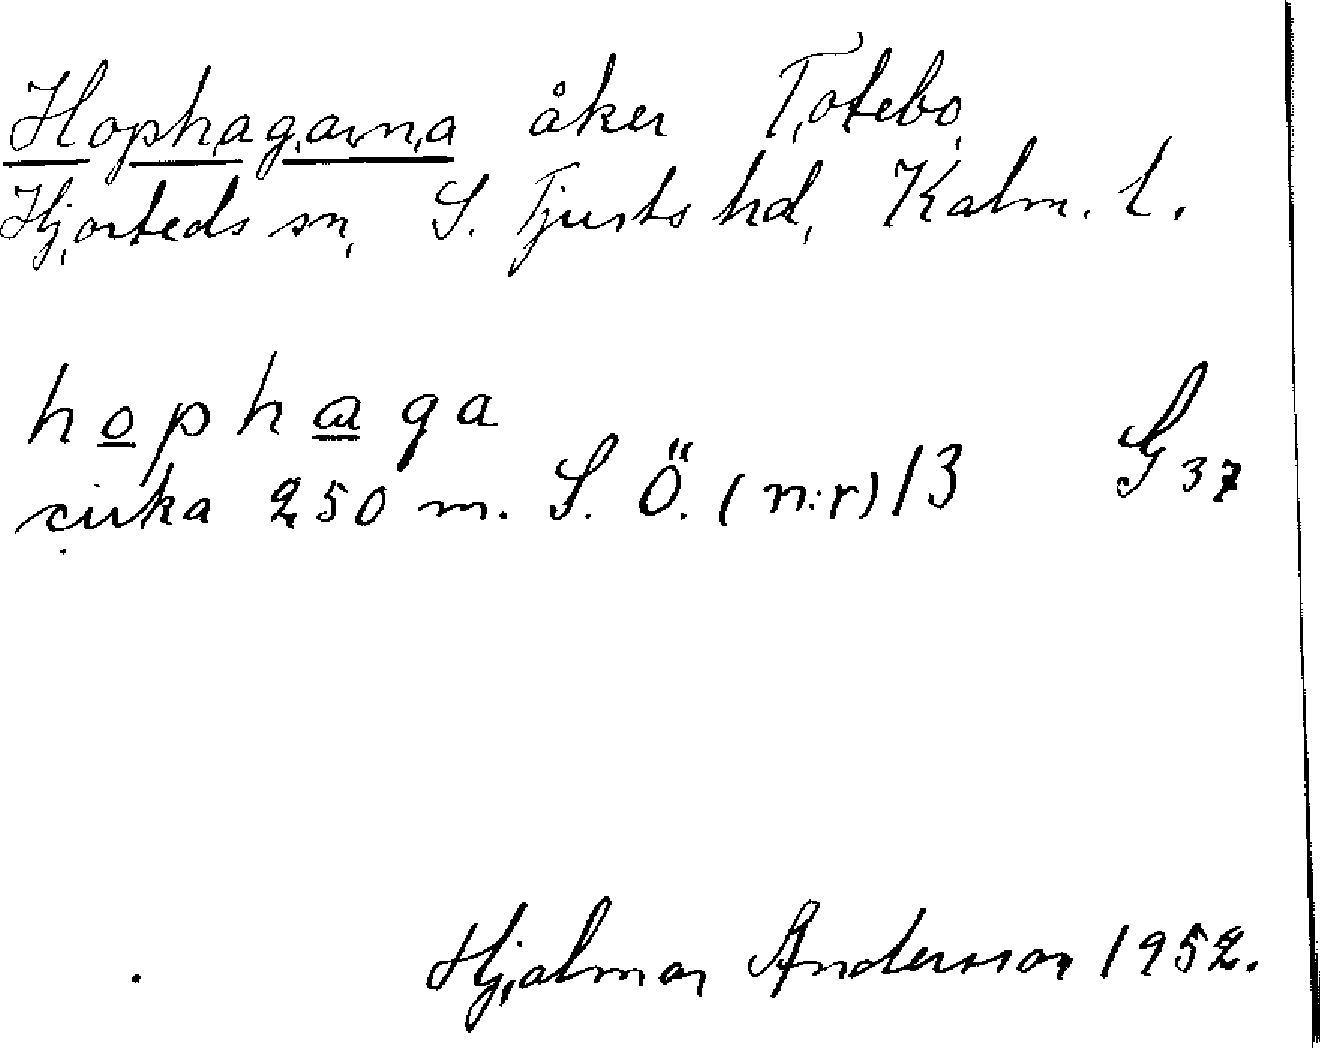 Hophagarna åker Totebo,
Hjorteds sn, S. Tjusts hd, Kalm. l.
hophaga
cirka 250 m. S. Ö. (n:r) 13 G 37
Hjalmar Andersson 1952.